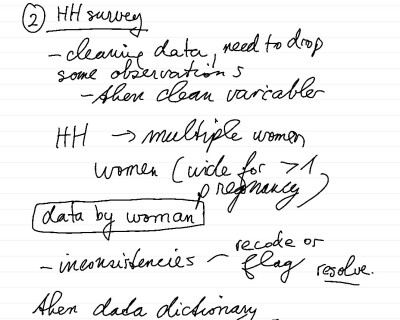 ② HH survey
- cleaning data, need to drop
some observations
- then clean variables
HH → multiple women
women (wide for >1
pregnancy)
data by woman
- inconsistencies - recode or
flag resolve.
then data dictionary